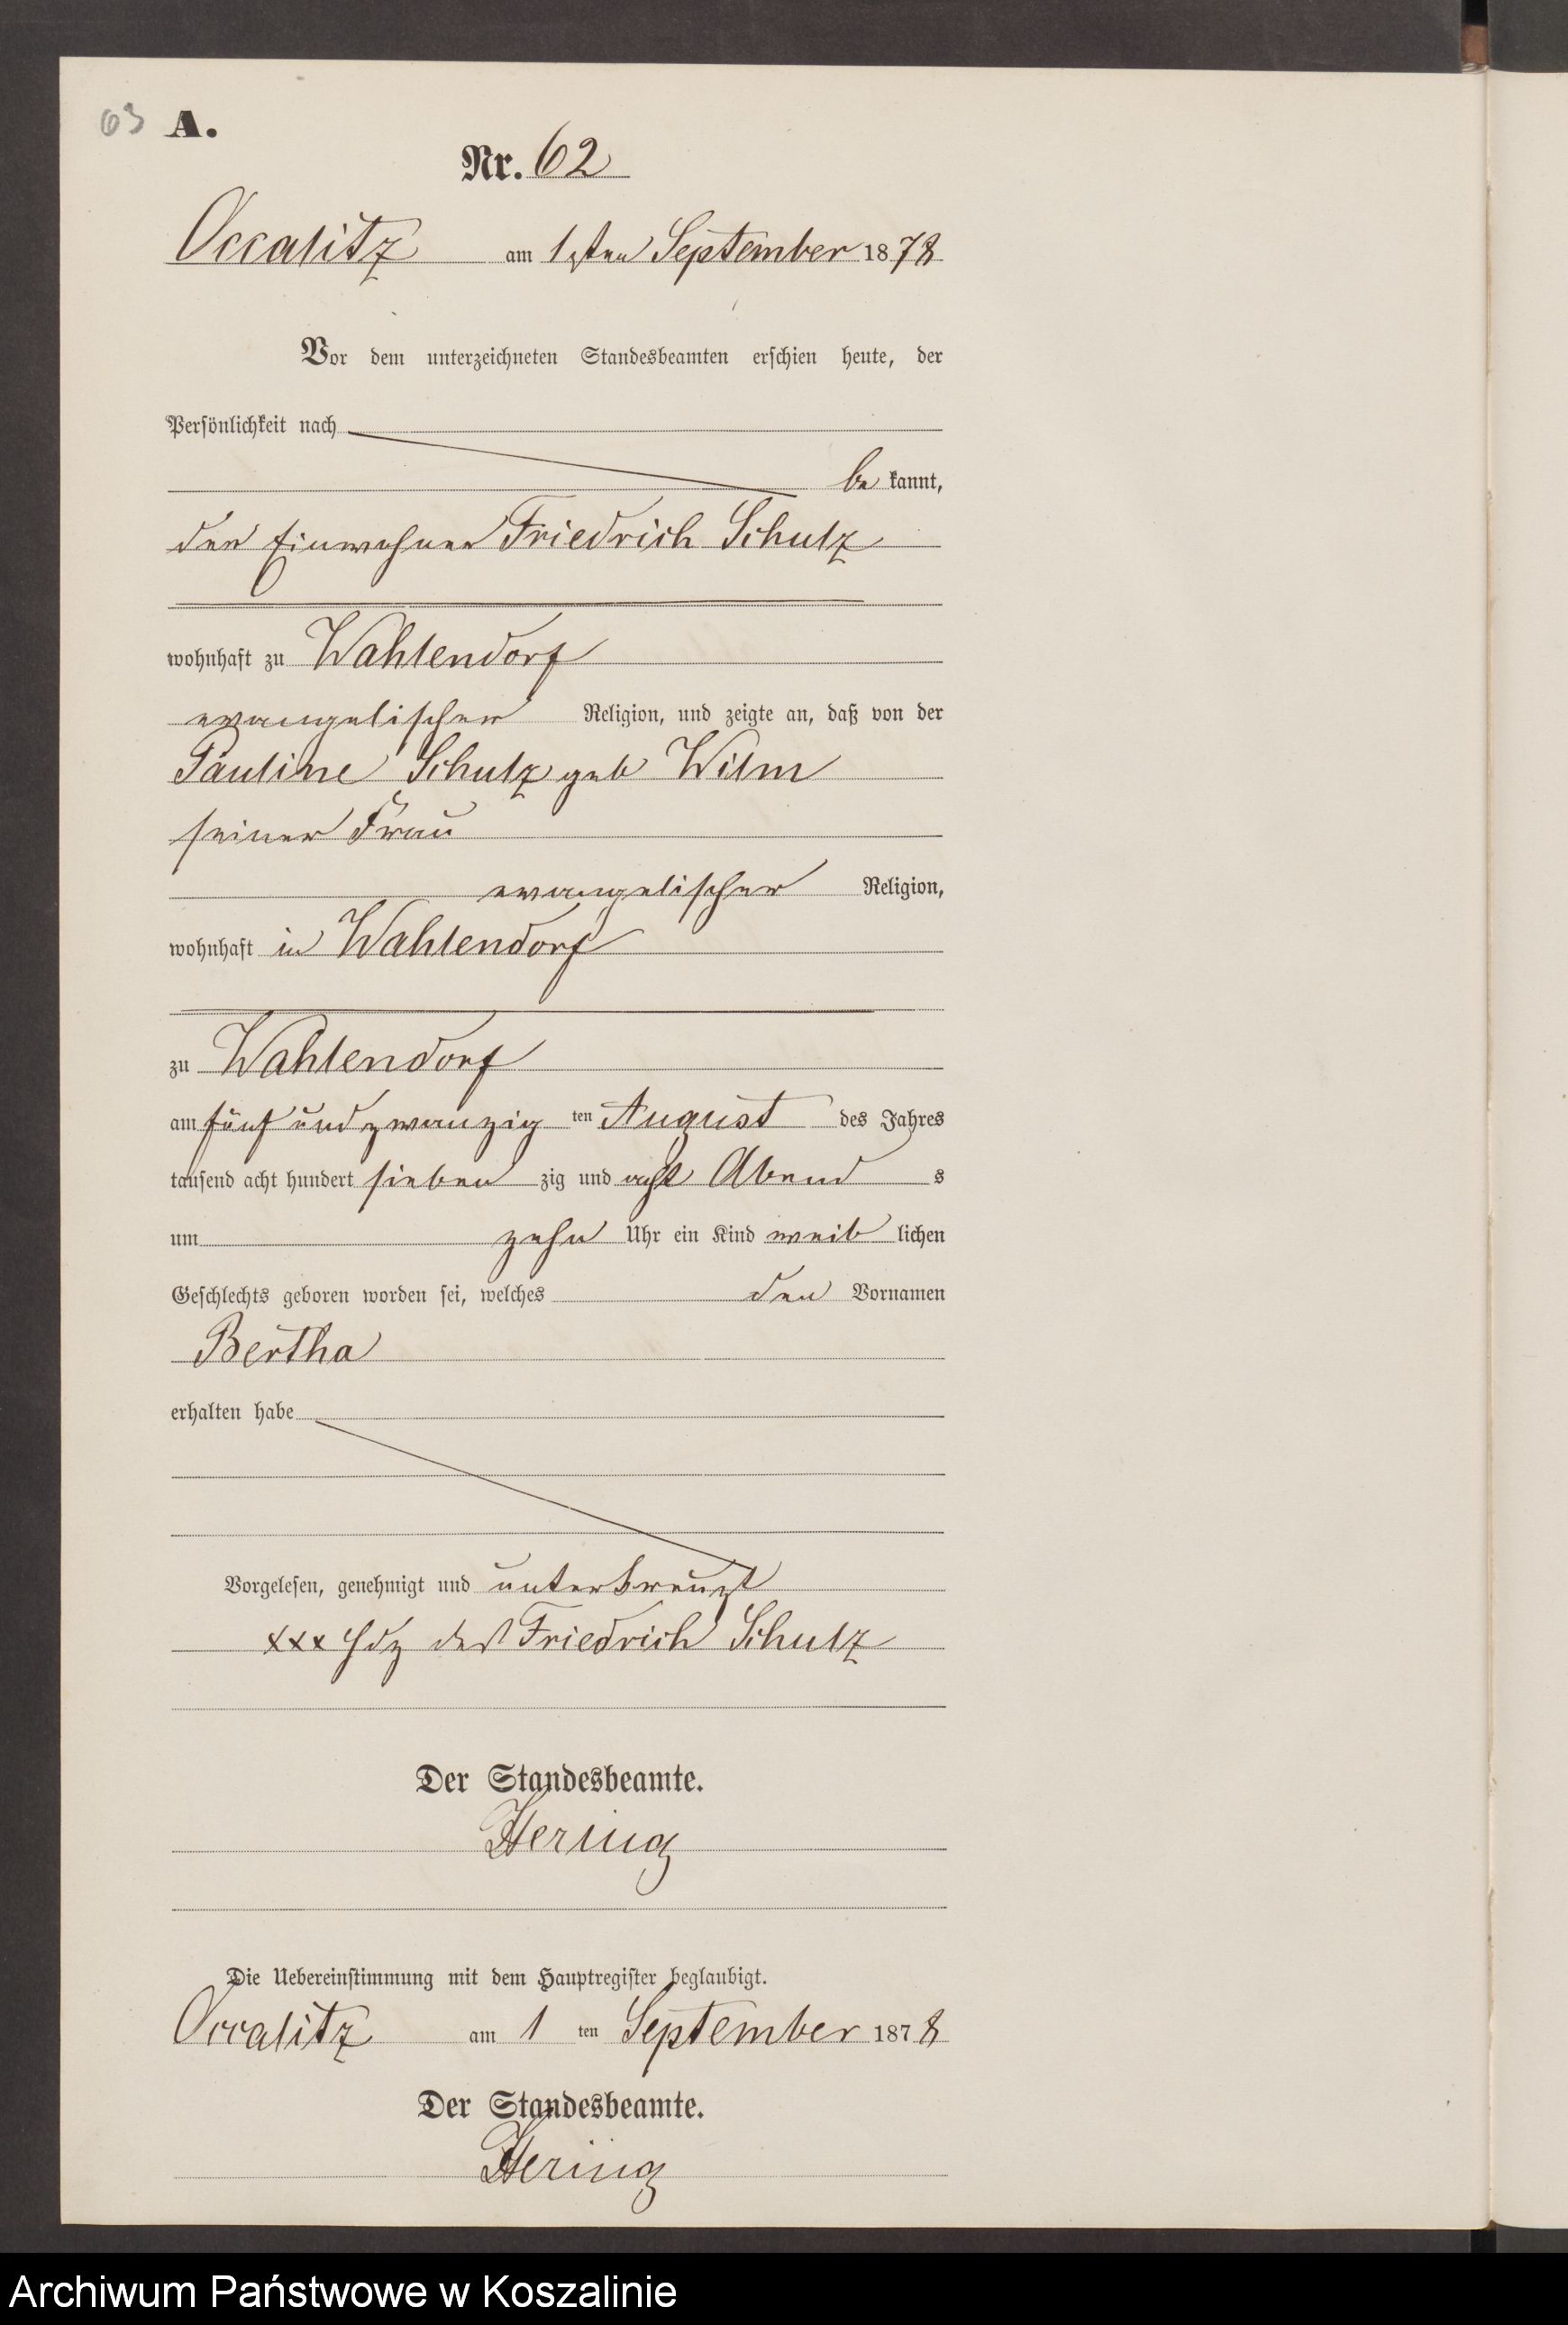 63 A.
Nr. 62
Occalitz am 1sten September 1878
Vor dem unterzeichneten Standesbeamten erschien heute, der
Persönlichkeit nach
be kannt,
der Einwohner Friedrich Schulz
wohnhaft zu Wahlendorf
evangelischer Religion, und zeigte an, daß von der
Pauline Schulz geb Wilm
seiner Frau
evangelischer Religion,
wohnhaft in Wahlendorf
zu Wahlendorf
am fünf und zwanzig ten August des Jahres
tausend acht hundert sieben zig und acht Abend s
um zehn Uhr ein Kind weib lichen
Geschlechts geboren worden sei, welches den Vornamen
Bertha
erhalten habe
Vorgelesen, genehmigt und unterkreuzt
xxx Hdz des Friedrich Schulz
Der Standesbeamte.
Hering
Die Uebereinstimmung mit dem Hauptregister beglaubigt.
Occalitz am 1 ten September 1878
Der Standesbeamte.
Hering
Archiwum Państwowe w Koszalinie